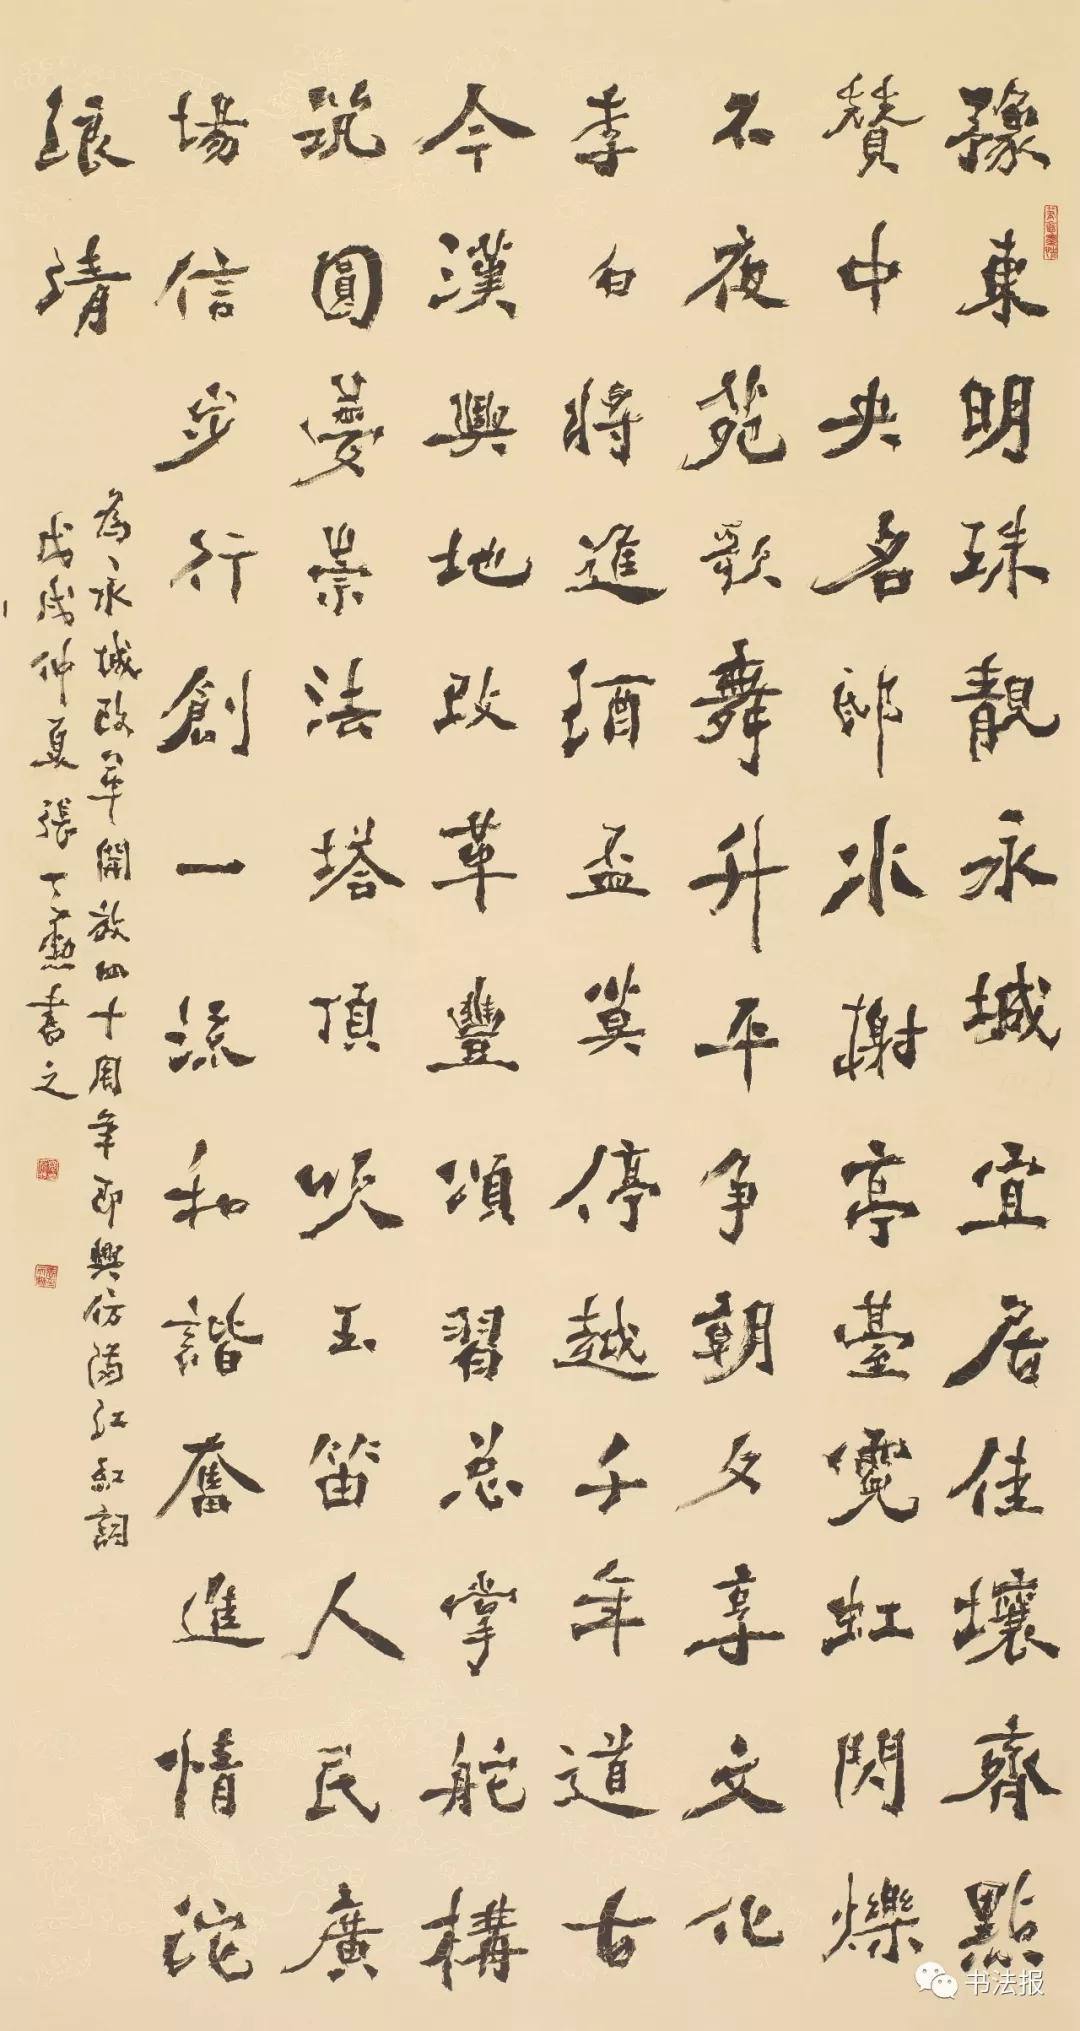 豫東明珠靚永城宜居佳壤齊點
贊中央名邸水榭亭臺霓虹閃爍
不夜苑歌舞升平争朝夕享文化
李白將進酒盃莫停越千年道古
今漢興地改革豐頌習总掌舵構
筑圓夢崇法塔頂吹玉笛人民廣
場信步行創一流和諧奮進情沱
弦靖
為永城改革開放四十周年即興仿滿江紅詞
戊戌仲夏張書之
书法报